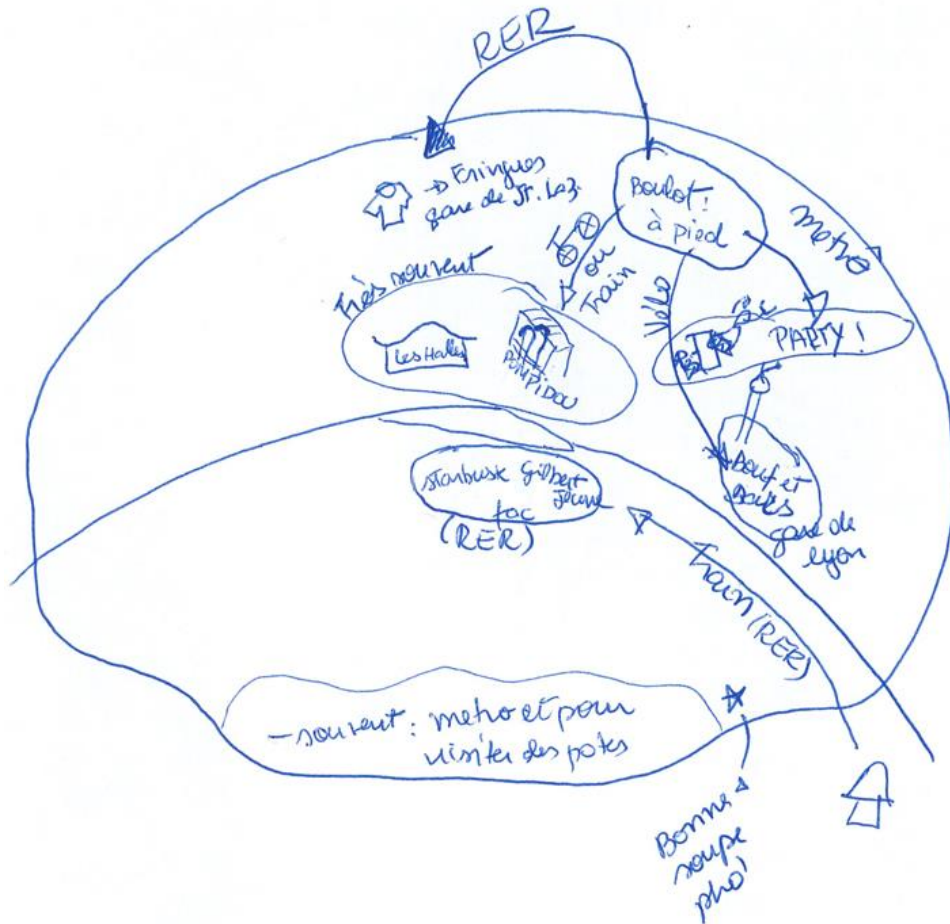 RER
→ Fringues
gare de St. Laz.
Boulot !
à pied
metro
ou
Train
Très souvent
Les Halles
POMPIDOU
Vélo
PARTY !
Bouf et
gare de
lyon
Starbusk Gilbert
Jeune
fac
(RER)
Train (RER)
- souvent : metro et pour
visiter des potes
Bonne
soupe
pho